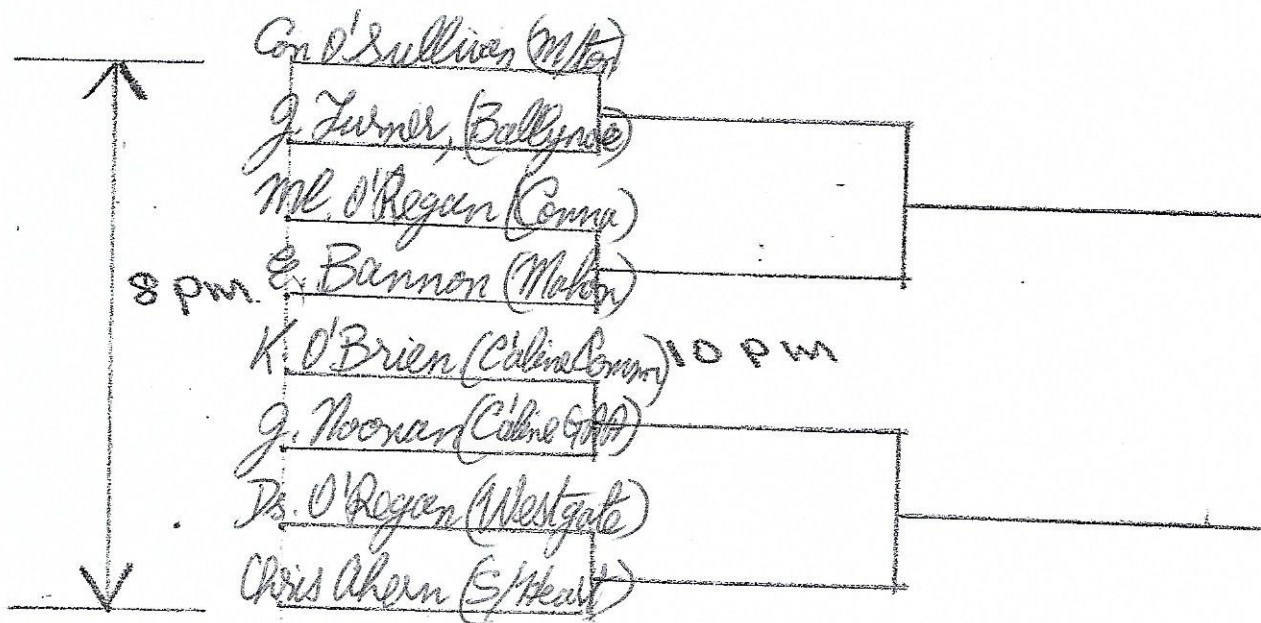 Con O'Sullivan (M/ton)
J. Turner, (Ballynoe)
Ml. O'Regan (Conna)
8 pm. E. Bannon (Mahon)
K. O'Brien (C'aline Comm) 10 pm
J. Noonan (C'aline GAA)
Ds. O'Regan (Westgate)
Chris Ahern (S/Heart)